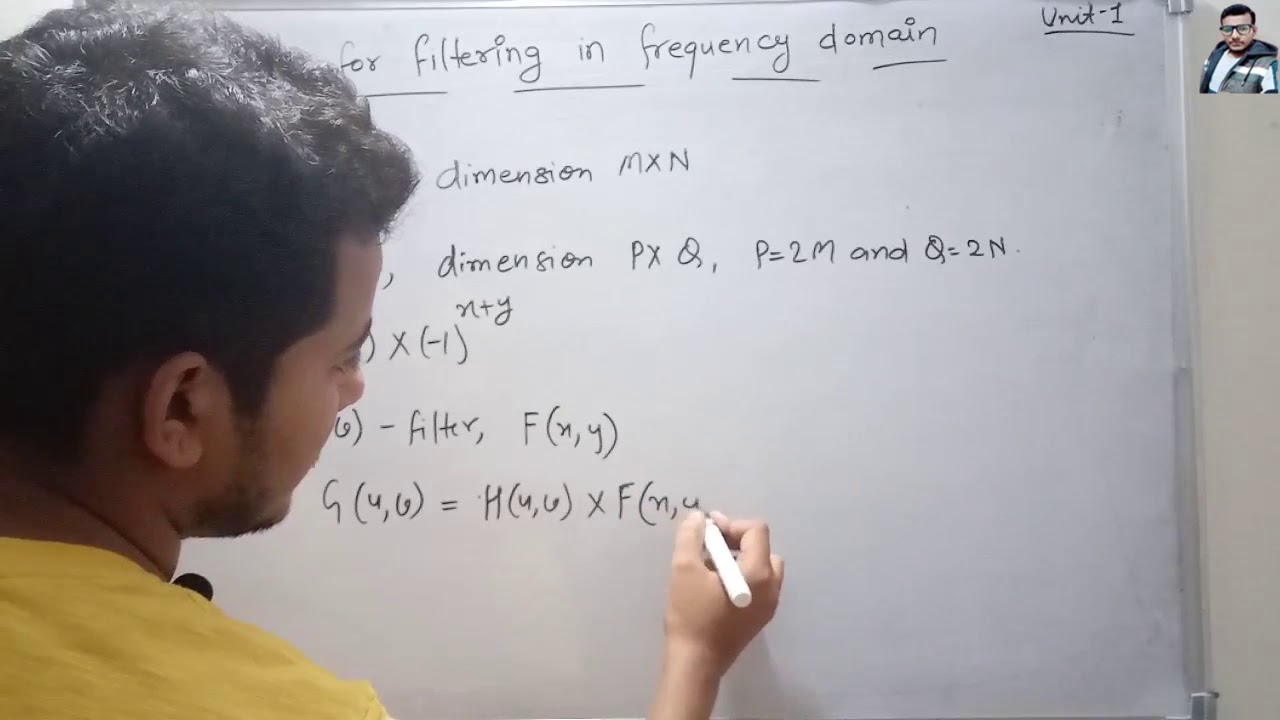 Unit-1
for filtering in frequency domain
dimension M×N
, dimension P×Q, P=2M and Q=2N.
) × (-1)^x+y
v) - filter, F(x,y)
G(u,v) = H(u,v) × F(x,y